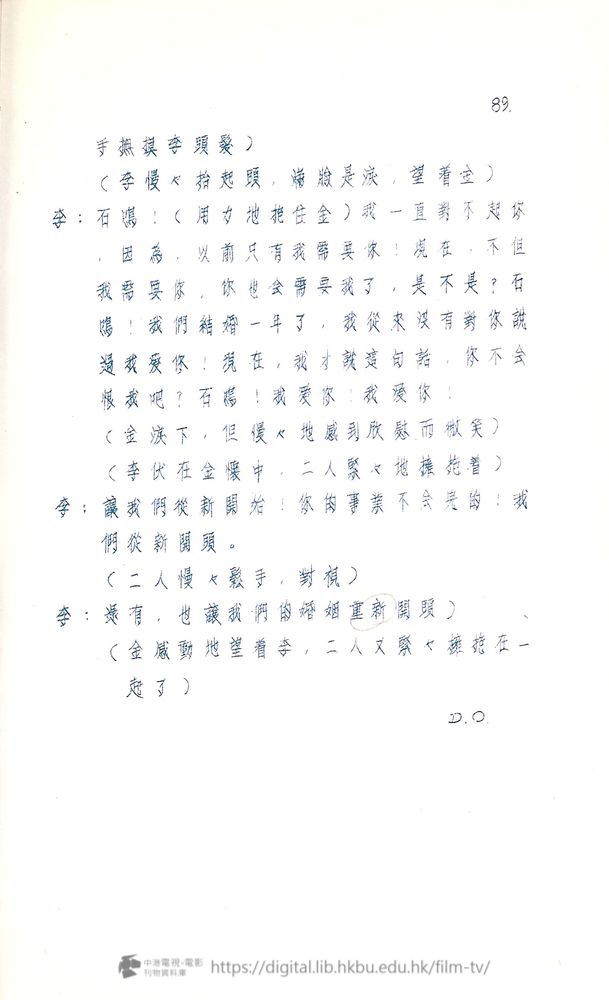 89.
手撫摸李頭髮）
（李慢々抬起頭，滿臉是淚，望着金）
李：石鳴！（用力地抱住金）我一直對不起你
，因為，以前只有我需要你！現在，不但
我需要你，你也会需要我了，是不是？石
鳴！我們結婚一年了，我從來沒有對你說
過我愛你！現在，我才說這句話，你不会
恨我吧？石鳴！我愛你！我愛你！
（金淚下，但慢々地感到欣慰而微笑）
（李伏在金懷中，二人緊々地擁抱着）
李：讓我們從新開始！你的事業不会完的！我
們從新開頭。
（二人慢々鬆手，對視）
李：還有，也讓我們的婚姻重新開頭）
（金感動地望着李，二人又緊々擁抱在一
起了）
D.O.
中港電視·電影
刊物資料庫
https://digital.lib.hkbu.edu.hk/film-tv/